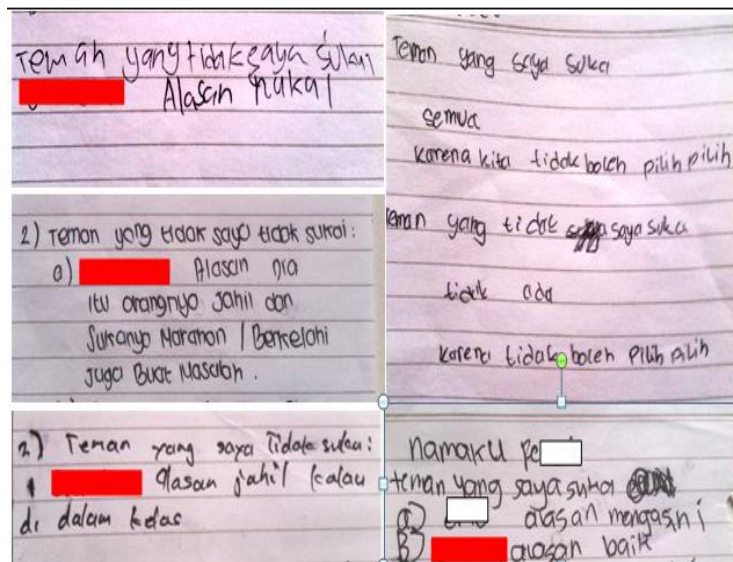 Teman yang tidak saya sukai
Alasan nakal
2) Teman yang tidak saya tidak sukai:
a) Alasan Dia
itu orangnya Jahil dan
Sukanya Marahan / Berkelahi
Juga Buat Masalah.
2) Teman yang saya Tidak suka:
alasan jahil kalau
di dalam kelas
Teman yang saya suka
semua
karena kita tidak boleh pilih pilih
teman yang tidak saya suka
tidak ada
karena tidak boleh pilih pilih
namaku Pe
teman yang saya sukai
a) alasan mengasihi
B) alasan baik